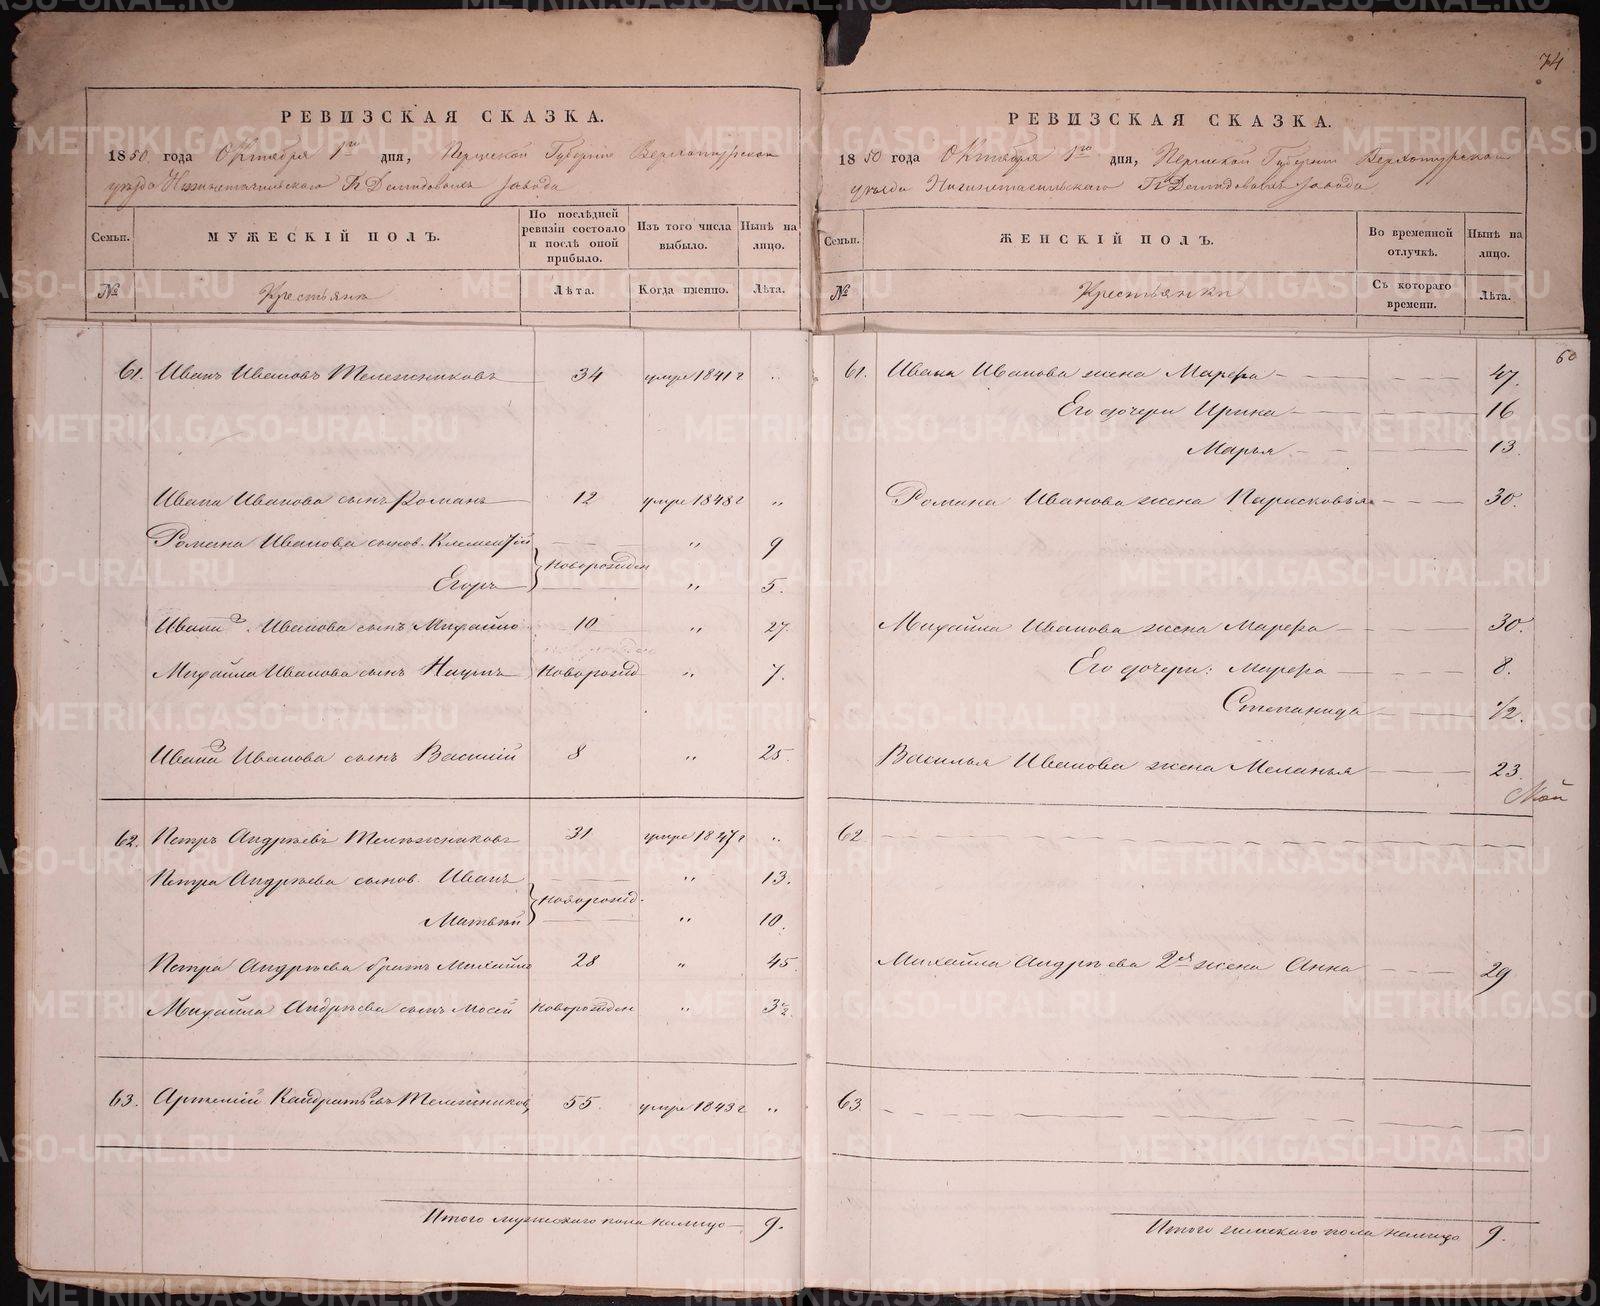 74
РЕВИЗСКАЯ СКАЗКА.
1850 года Октября 1го дня, Пермской Губернии Верхотурскаго
уѣзда Нижнетагильскаго Гг. Демидовыхъ завода
Семьи.
МУЖЕСКІЙ ПОЛЪ.
По послѣдней ревизіи состояло и послѣ оной прибыло.
Изъ того числа выбыло.
Нынѣ на лицо.
№
Крестьяне
Лѣта.
Когда именно.
Лѣта.
61. Иванъ Ивановъ Тележниковъ 34 умре 1841 г "
Ивана Иванова сынъ Романъ 12 умре 1848 г "
Романа Иванова сынов. Клементій " 9
новорожден
Егоръ " 5.
Ивана Иванова сынъ Михайло 10 " 27.
Михайла Иванова сынъ Наумъ новорожд " 7.
Ивана Иванова сынъ Василій 8 " 25.
62. Петръ Андрѣевъ Тележниковъ 31 умре 1847 г "
Петра Андрѣева сынов. Иванъ " 13.
новорожд.
Матвѣй " 10.
Петра Андрѣева братъ Михайло 28 " 45.
Михайла Андрѣева сынъ Мосей новорожден "
63. Артемій Кандратьевъ Тележниковъ 55. умре 1843 г "
Итого мужескаго пола налицо 9.
РЕВИЗСКАЯ СКАЗКА.
1850 года Октября 1го дня, Пермской Губерніи Верхотурскаго
уѣзда Нижнетагильскаго Гг. Демидовыхъ завода
Семьи.
ЖЕНСКІЙ ПОЛЪ.
Во временной отлучкѣ.
Нынѣ на лицо.
№
Крестьянки
Съ котораго времени.
Лѣта.
60
61. Ивана Иванова жена Марѳа 47.
Его дочери Ирина 16
Марья 13.
Романа Иванова жена Парасковья 30.
Михайла Иванова жена Марѳа 30.
Его дочери: Марѳа 8.
Степанида 1/2.
Василья Иванова жена Меланья 23.
62
Михайла Андрѣева 2я жена Анна 29
63.
Итого женскаго пола налицо 9.
METRIKI.GASO-URAL.RU